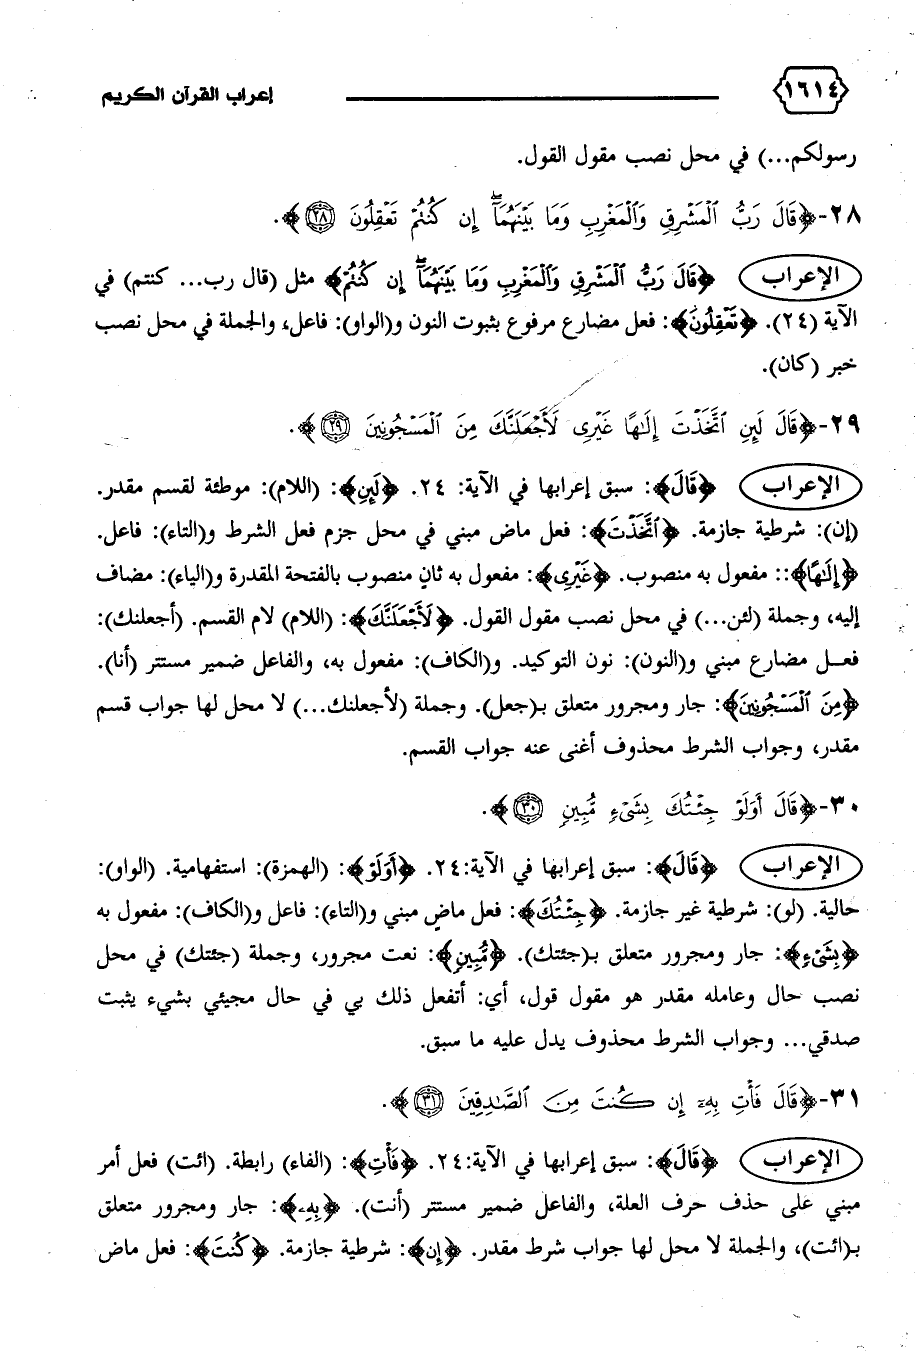 ١٦١٤ إعراب القرآن الكريم
رسولكم...) في محل نصب مقول القول.
٢٨-﴿قَالَ رَبُّ ٱلْمَشْرِقِ وَٱلْمَغْرِبِ وَمَا بَيْنَهُمَآ ۖ إِن كُنتُمْ تَعْقِلُونَ ۝٢٨﴾.
الإعراب ﴿قَالَ رَبُّ ٱلْمَشْرِقِ وَٱلْمَغْرِبِ وَمَا بَيْنَهُمَآ ۖ إِن كُنتُمْ﴾ مثل (قال رب... كنتم) في
الآية (٢٤). ﴿تَعْقِلُونَ﴾: فعل مضارع مرفوع بثبوت النون و(الواو): فاعل، والجملة في محل نصب
خبر (كان).
٢٩-﴿قَالَ لَئِنِ ٱتَّخَذْتَ إِلَٰهًا غَيْرِى لَأَجْعَلَنَّكَ مِنَ ٱلْمَسْجُونِينَ ۝٢٩﴾.
الإعراب ﴿قَالَ﴾: سبق إعرابها في الآية: ٢٤. ﴿لَئِنِ﴾: (اللام): موطئة لقسم مقدر.
(إن): شرطية جازمة. ﴿ٱتَّخَذْتَ﴾: فعل ماض مبني في محل جزم فعل الشرط و(التاء): فاعل.
﴿إِلَٰهًا﴾:: مفعول به منصوب. ﴿غَيْرِى﴾: مفعول به ثانٍ منصوب بالفتحة المقدرة و(الياء): مضاف
إليه، وجملة (لئن...) في محل نصب مقول القول. ﴿لَأَجْعَلَنَّكَ﴾: (اللام) لام القسم. (أجعلنك):
فعل مضارع مبني و(النون): نون التوكيد. و(الكاف): مفعول به، والفاعل ضمير مستتر (أنا).
﴿مِنَ ٱلْمَسْجُونِينَ﴾: جار ومجرور متعلق بـ(جعل). وجملة (لأجعلنك...) لا محل لها جواب قسم
مقدر، وجواب الشرط محذوف أغنى عنه جواب القسم.
٣٠-﴿قَالَ أَوَلَوْ جِئْتُكَ بِشَىْءٍ مُّبِينٍ ۝٣٠﴾.
الإعراب ﴿قَالَ﴾: سبق إعرابها في الآية:٢٤. ﴿أَوَلَوْ﴾: (الهمزة): استفهامية. (الواو):
حالية. (لو): شرطية غير جازمة. ﴿جِئْتُكَ﴾: فعل ماضٍ مبني و(التاء): فاعل و(الكاف): مفعول به
﴿بِشَىْءٍ﴾: جار ومجرور متعلق بـ(جئتك). ﴿مُّبِينٍ﴾: نعت مجرور، وجملة (جئتك) في محل
نصب حال وعامله مقدر هو مقول قول، أي: أتفعل ذلك بي في حال مجيئي بشيء يثبت
صدقي... وجواب الشرط محذوف يدل عليه ما سبق.
٣١-﴿قَالَ فَأْتِ بِهِۦٓ إِن كُنتَ مِنَ ٱلصَّٰدِقِينَ ۝٣١﴾.
الإعراب ﴿قَالَ﴾: سبق إعرابها في الآية:٢٤. ﴿فَأْتِ﴾: (الفاء) رابطة. (ائت) فعل أمر
مبني على حذف حرف العلة، والفاعل ضمير مستتر (أنت). ﴿بِهِۦٓ﴾: جار ومجرور متعلق
بـ(ائت)، والجملة لا محل لها جواب شرط مقدر. ﴿إِن﴾: شرطية جازمة. ﴿كُنتَ﴾: فعل ماض